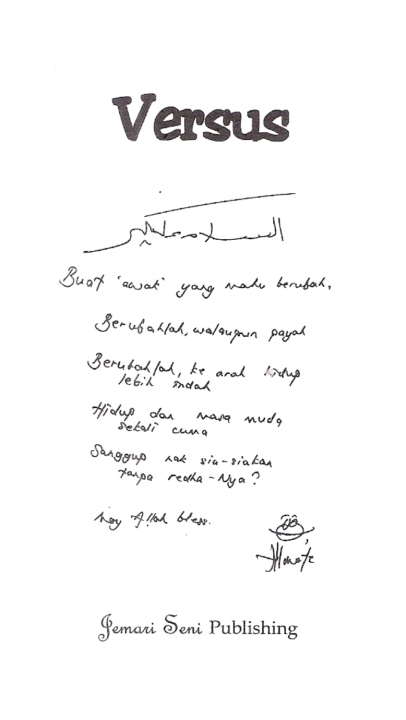 Versus
السلام عليكم
Buat 'awak' yang mahu berubah.
Berubahlah, walaupun payah
Berubahlah, ke arah hidup
lebih indah
Hidup dan masa muda
sekali cuma
Sanggup nak sia-siakan
tanpa redha-Nya?
May Allah bless.
Jemari Seni Publishing